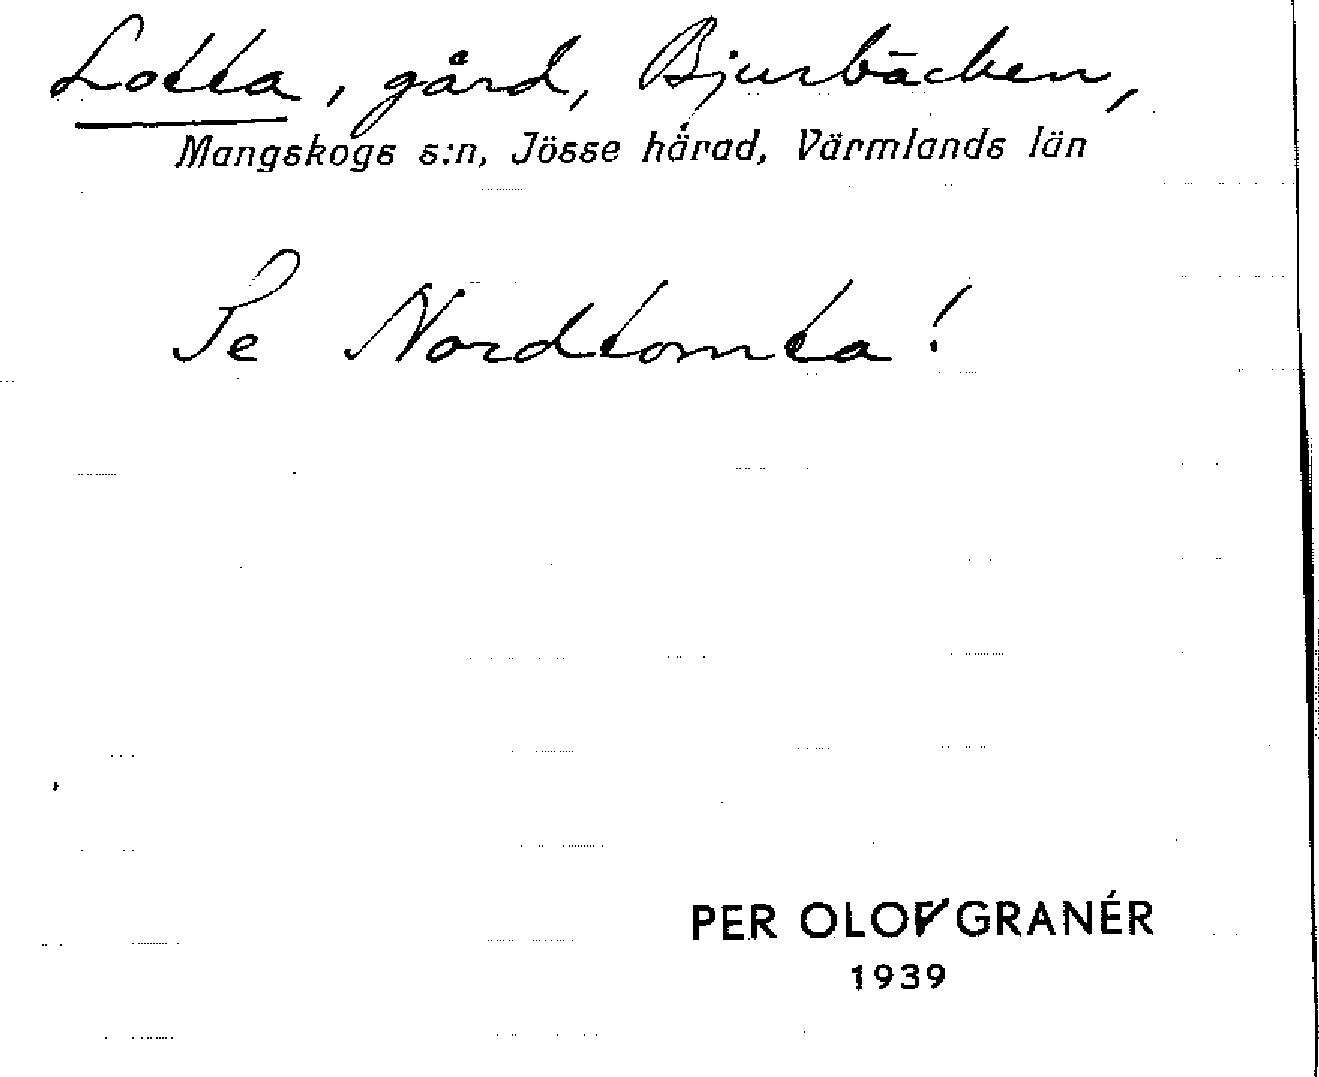 Lotta, gård, Bjurbäcken,
Mangskogs s:n, Jösse härad, Värmlands län
Se Nordtomta!
PER OLOV GRANÉR
1939